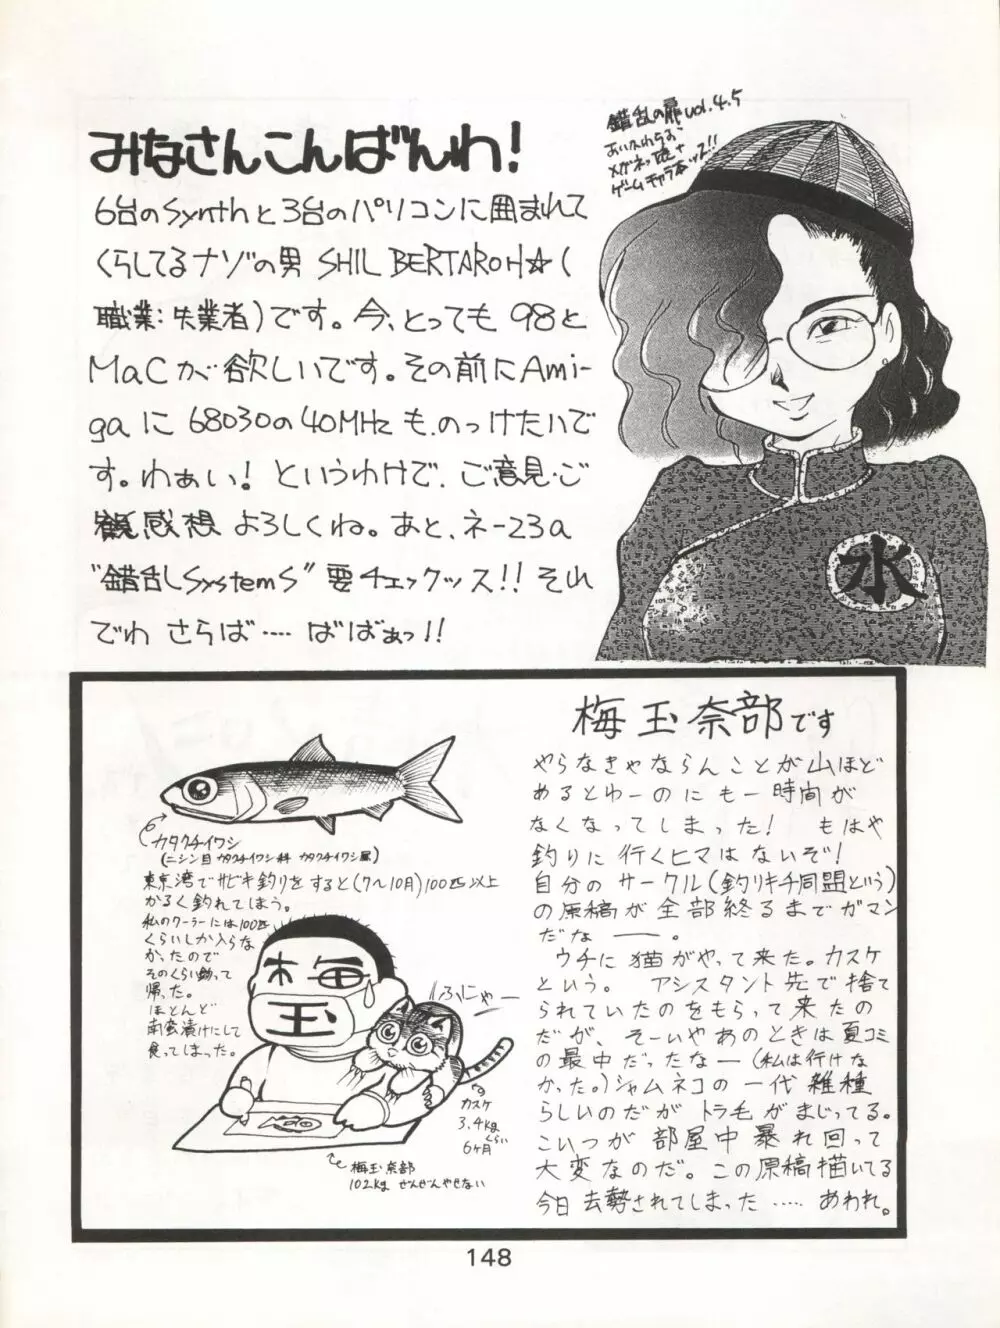 みなさんこんばんわ!
6台のSynthと3台のパソコンに囲まれて
くらしてるナゾの男 SHIL BERTAROH☆(
職業:失業者)です。今、とっても 98と
MaCが欲しいです。その前にAmi-
gaに68030の40MHzも、のっけたいで
す。わぁい! というわけで、ご意見・ご
感想 よろしくね。あと、ネー23a
"錯乱SystemS" 要チェックッス!! それ
でわ さらば‥‥ ばばぁっ!!
錯乱の扉vol.4.5
ゲームキャラ本ッス!!
水
梅玉奈部です
やらなきゃならんことが山ほど
あるとゆーのにも一時間が
なくなってしまった! もはや
釣りに行くヒマはないぞ!
自分のサークル(釣りキチ同盟という)
の原稿が全部終るまでガマン
だなー。
ウチに猫がやって来た。カスケ
という。 アシスタント先で捨て
られていたのをもらって来たの
だが、そーいやあのときは夏コミ
の最中だったなー(私は行けな
かった。)シャムネコの一代雑種
らしいのだがトラ毛がまじってる。
こいつが部屋中暴れ回って
大変なのだ。この原稿描いてる
今日去勢されてしまった‥‥‥ あわれ。
カタクチイワシ
(ニシン目 カタクチイワシ科 カタクチイワシ属)
東京湾でサビキ釣りをすると(7〜10月)100匹以上
かるく釣れてしまう。
私のクーラーには100匹
くらいしか入らな
かったので
そのくらい釣って
帰った。
ほとんど
南蛮漬けにして
食ってしまった。
梅
玉
ふにゃー
カスケ
3.4kg
くらい
6ヶ月
梅玉奈部
102kg ぜんぜんやせない
148